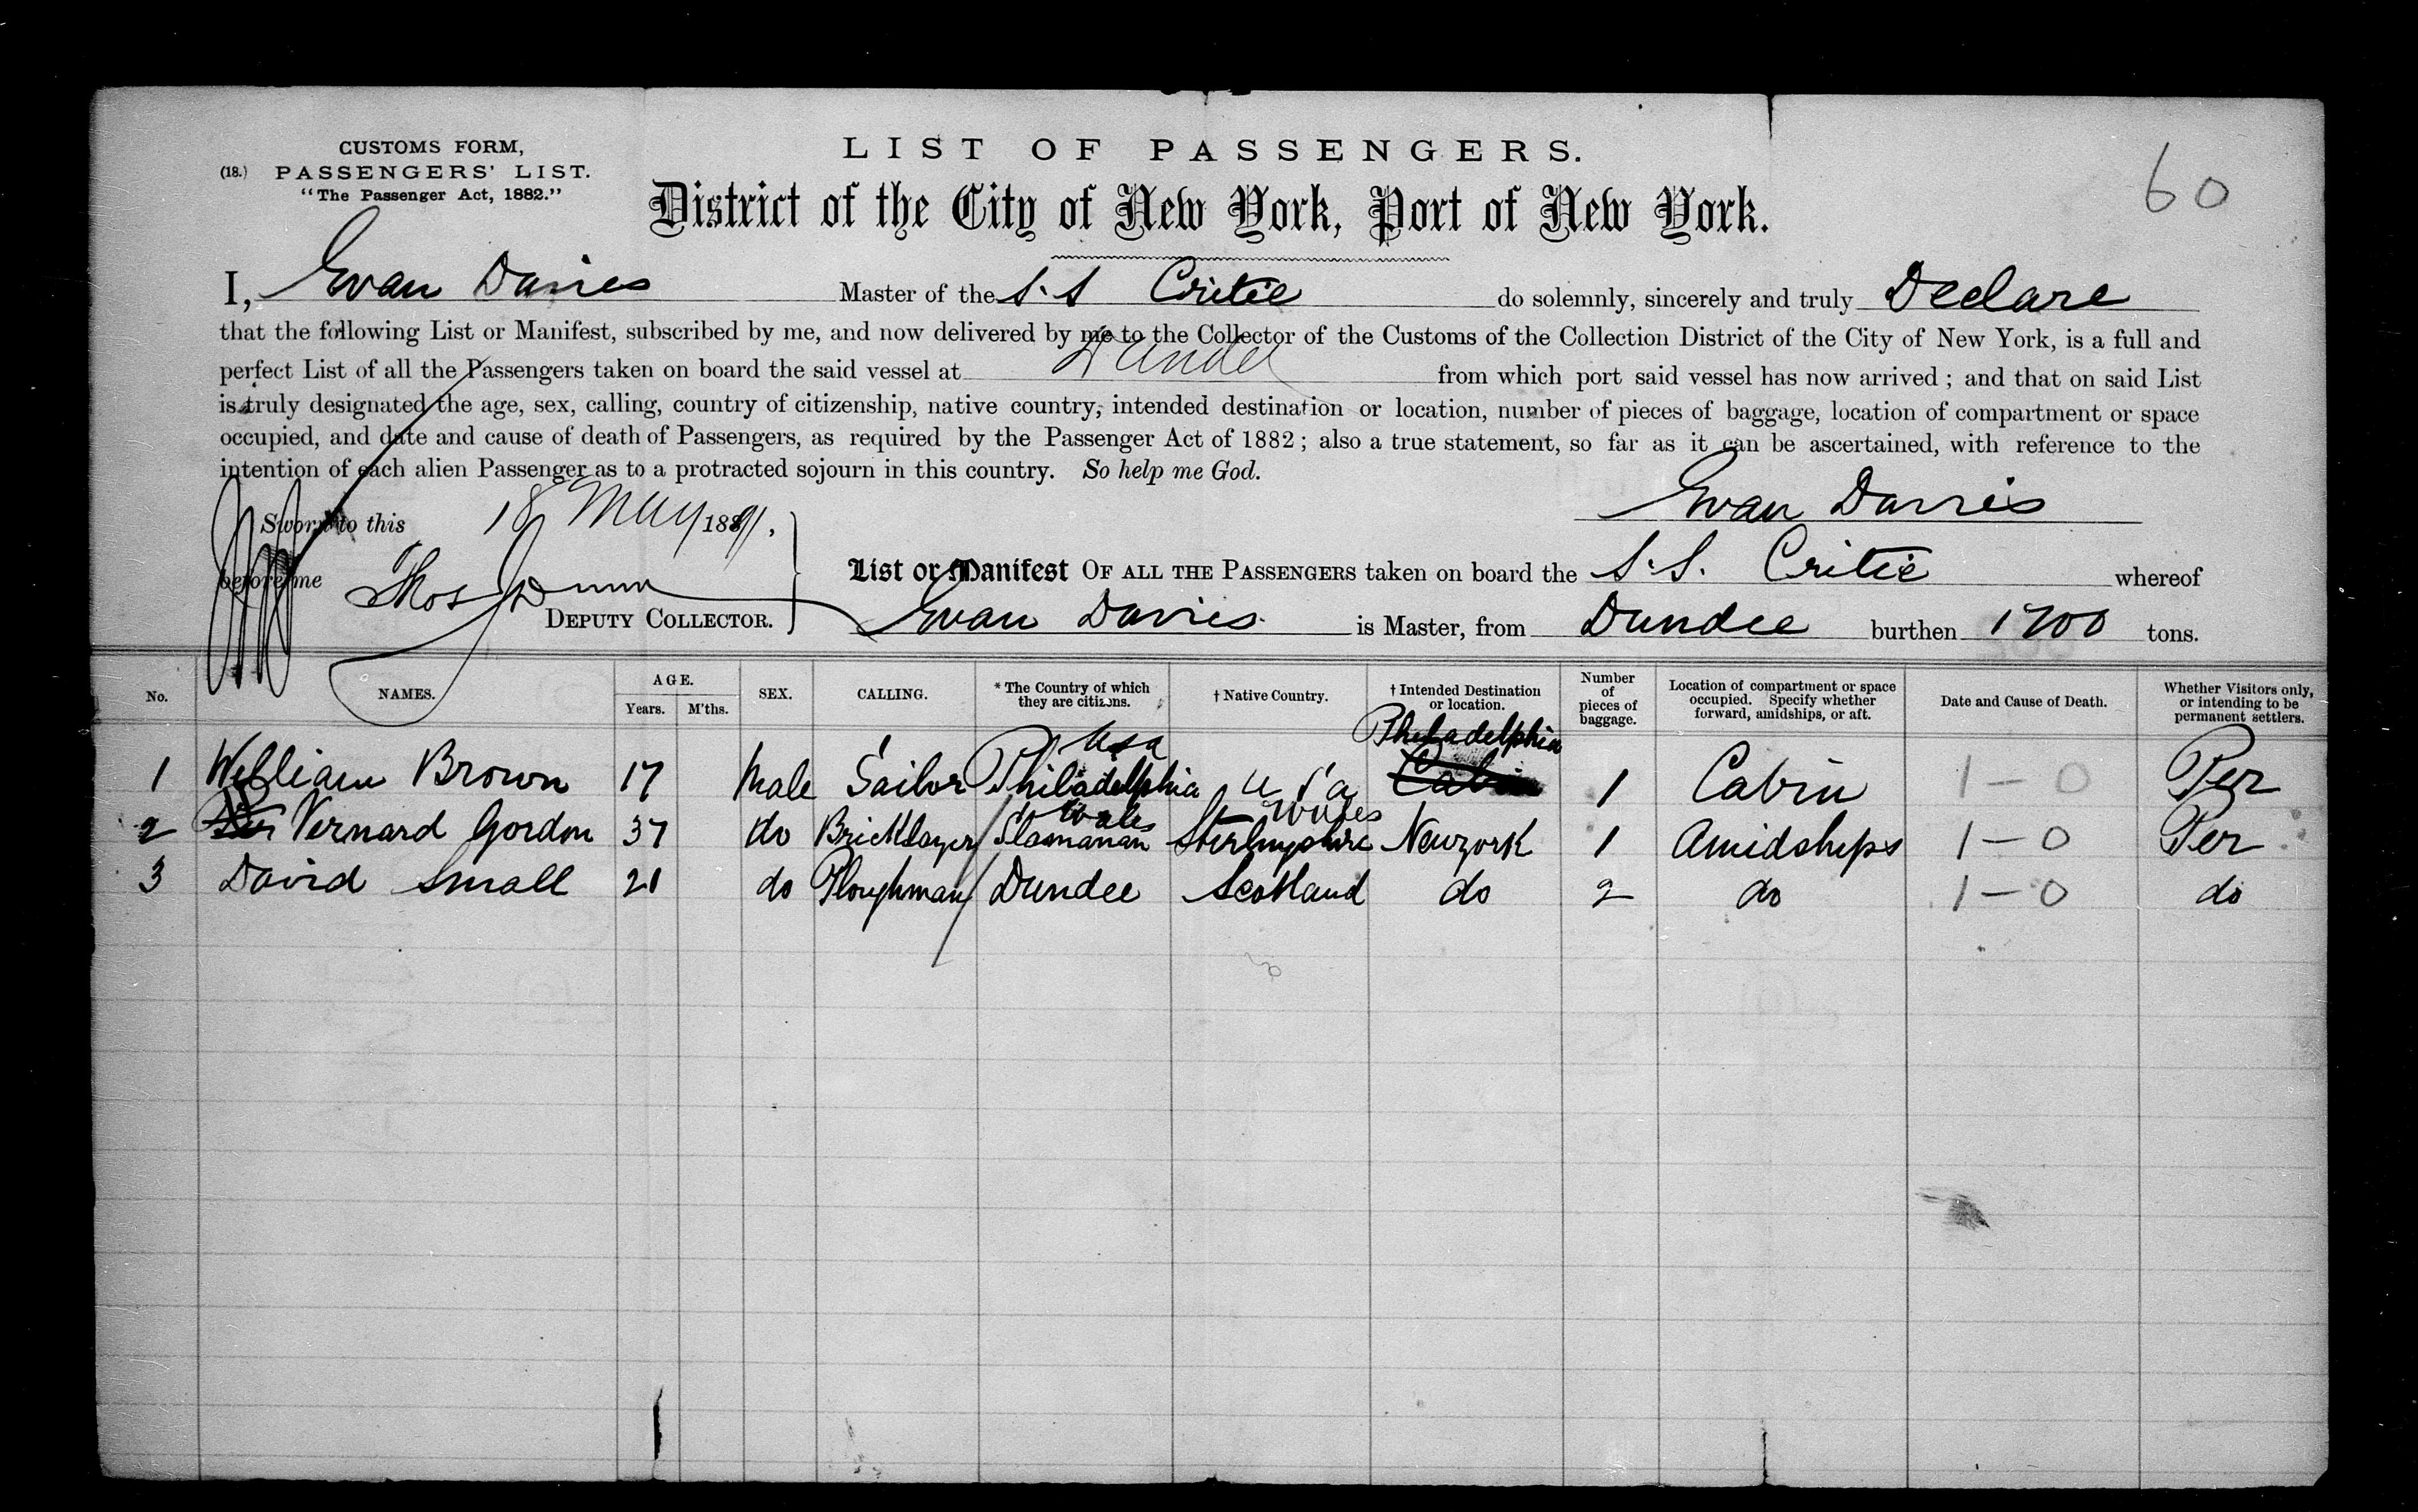 CUSTOMS FORM,
(18.) PASSENGERS' LIST.
"The Passenger Act, 1882."
LIST OF PASSENGERS.
60
District of the City of New York, Port of New York.
I, Evan Davies Master of the S.S Critic do solemnly, sincerely and truly Declare
that the following List or Manifest, subscribed by me, and now delivered by me to the Collector of the Customs of the Collection District of the City of New York, is a full and
perfect List of all the Passengers taken on board the said vessel at Dundee from which port said vessel has now arrived; and that on said List
is truly designated the age, sex, calling, country of citizenship, native country, intended destination or location, number of pieces of baggage, location of compartment or space
occupied, and date and cause of death of Passengers, as required by the Passenger Act of 1882; also a true statement, so far as it can be ascertained, with reference to the
intention of each alien Passenger as to a protracted sojourn in this country. So help me God.
Evan Davies
Sworn to this 18 May 1891.
before me Thos Dunn
DEPUTY COLLECTOR.
List or Manifest OF ALL THE PASSENGERS taken on board the S.S. Critic whereof
Evan Davies is Master, from Dundee burthen 1700 tons.
No. NAMES. AGE. Years. M'ths. SEX. CALLING. * The Country of which they are citizens. † Native Country. † Intended Destination or location. Number of pieces of baggage. Location of compartment or space occupied. Specify whether forward, amidships, or aft. Date and Cause of Death. Whether Visitors only, or intending to be permanent settlers.
Usa Philadelphia
1 William Brown 17 Male Sailor Philadelphia U S a Cabin 1 Cabin 1 - 0 Per
Wales Wales
2 Vernard Gordon 37 do Bricklayer Slamanan Sterlingshire Newyork 1 Amidships 1 - 0 Per
3 David Small 21 do Ploughman Dundee Scotland do 2 do 1 - 0 do